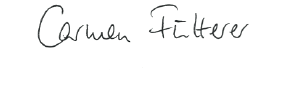 Carmen Fütterer